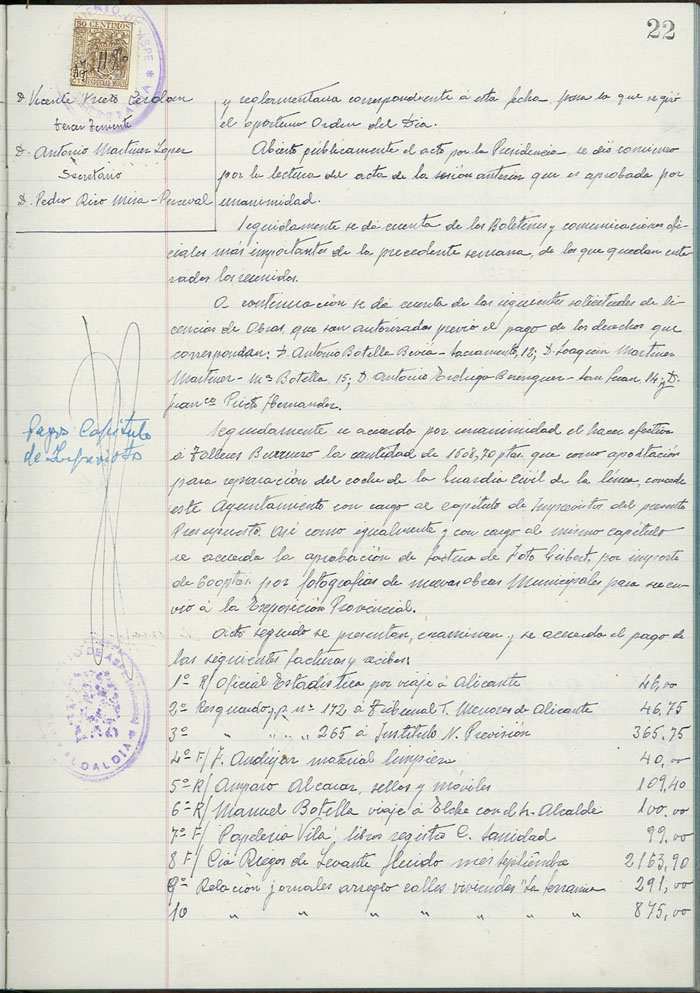 22
50 CENTIMOS
D Vicente Prieto Cerdan
Teran Teniente
D. Antonio Martinez Lopez
Secretario
D. Pedro Rico Mira-Perceval
y reglamentaria correspondiente á esta fecha, para la que se giró
el oportuno Orden del Dia.
Abierto públicamente el acto por la Presidencia, se dió comienzo
por la lectura del acta de la sesión anterior que es aprobada por
unanimidad.
Seguidamente se dá cuenta de los Boletines y comunicaciones ofi-
ciales más importantes de la precedente semana, de los que quedan ente-
rados los reunidos.
A continuación se dá cuenta de las siguientes solicitudes de li-
cencias de Obras, que son autorizadas previo el pago de los derechos que
correspondan: D. Antonio Botella Bevia - Sacramento, 12; D. Joaquin Martinez
Martinez - Mª Botella, 15; D. Antonio Erdrigo Berenguer - San Juan, 14 y D.
Franco Prieto Hernandez.
Pagos Capitulo
de Imprevistos
Seguidamente se acuerda por unanimidad el hacer efectiva
á Talleres Burruezo la cantidad de 1508,70 ptas. que como aportación
para reparación del coche de la Guardia Civil de la linea, concede
este Ayuntamiento con cargo al capitulo de Imprevistos del presente
Presupuesto. Asi como igualmente y con cargo al mismo capitulo
se acuerda la aprobación de factura de Foto Gisbert, por importe
de 600 ptas. por fotografias de nuevas obras Municipales para su en-
vio á la Exposición Provincial.
Acto seguido se presentan, examinan y se acuerda el pago de
las siguientes facturas y recibos:
1º R/ Oficial Estadistica por viaje á Alicante 46,00
2º Resguardo g.p. nº 172 á Tribunal T. Menores de Alicante 46,75
3º " " " " 265 á Instituto N. Previsión 365,75
4º F/ J. Andujar material limpieza 40,00
5º R/ Amparo Alcaraz, sellos y móviles 109,40
6º R/ Manuel Botella viaje á Elche con el Sr. Alcalde 100,00
7º F/ Papeleria Vila libros registro C. Sanidad 99,00
8 F/ Cia Riegos de Levante fluido mes septiembre 2163,90
9º Relación jornales arreglo calles viviendas "La Serranica 291,00
10 " " " " " " " 875,00
DE ASPE
ALCALDIA